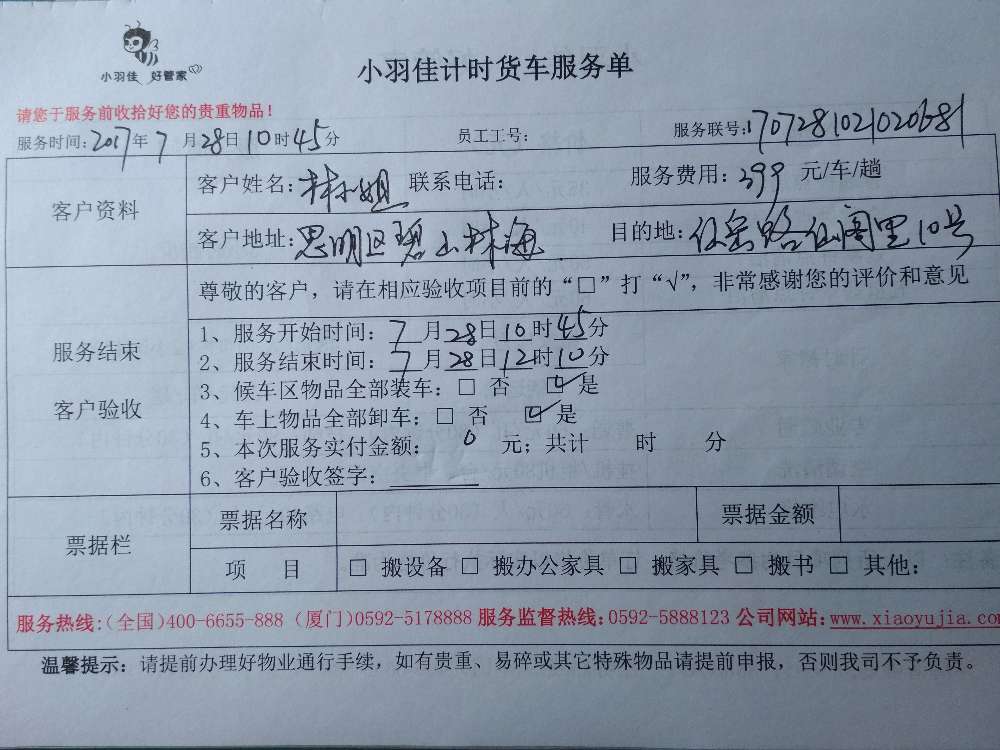 小羽佳 好管家
小羽佳计时货车服务单
请您于服务前收拾好您的贵重物品！
服务时间：2017年7月28日10时45分 员工工号： 服务联号：1707281021020681
客户资料
客户姓名：林小姐 联系电话： 服务费用：399 元/车/趟
客户地址：思明区碧山林海 目的地：仙岳路仙阁里10号
服务结束
客户验收
尊敬的客户，请在相应验收项目前的“□”打“√”，非常感谢您的评价和意见
1、服务开始时间：7月28日10时45分
2、服务结束时间：7月28日12时10分
3、候车区物品全部装车：□ 否 ☑ 是
4、车上物品全部卸车：□ 否 ☑ 是
5、本次服务实付金额： 0 元；共计 时 分
6、客户验收签字：
票据栏
票据名称 票据金额
项 目 □ 搬设备 □ 搬办公家具 □ 搬家具 □ 搬书 □ 其他：
服务热线：（全国）400-6655-888（厦门）0592-5178888 服务监督热线：0592-5888123 公司网站：www.xiaoyujia.com
温馨提示：请提前办理好物业通行手续，如有贵重、易碎或其它特殊物品请提前申报，否则我司不予负责。